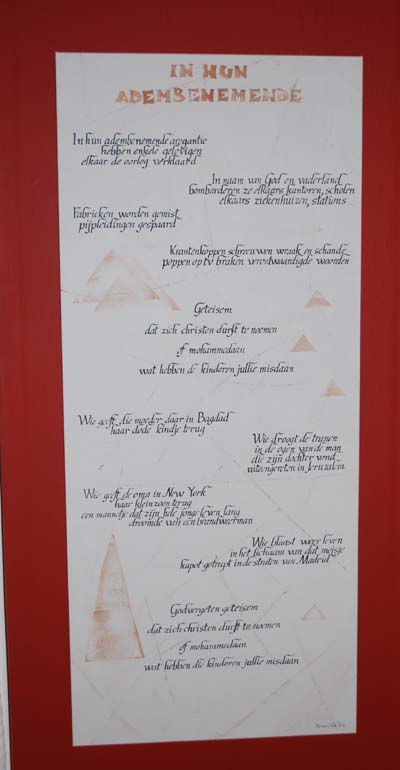 IN HUN
ADEMBENEMENDE
In hun adembenemende arogantie
hebben enkele gelovigen
elkaar de oorlog verklaard
In naam van God en vaderland
bombarderen ze elkaars kantoren, scholen
elkaars ziekenhuizen, stations
Fabrieken worden gemist
pijpleidingen gespaard
Krantenkoppen schreeuwen wraak en schande
poppen op tv braken verontwaardigde woorden
Geteisem
dat zich christen durft te noemen
of mohammedaan
wat hebben de kinderen jullie misdaan
Wie geeft die moeder daar in Bagdad
haar dode kindje terug
Wie droogt de tranen
in de ogen van de man
die zijn dochter vond
uiteengereten in Jeruzalem
Wie geeft de oma in New York
haar kleinzoon terug
een mannetje dat zijn hele jonge leven lang
droomde van een brandweerman
Wie blaast weer leven
in het lichaam van dat meisje
kapot getrapt in de straten van Madrid
Godvergeten geteisem
dat zich christen durft te noemen
of mohammedaan
wat hebben die kinderen jullie misdaan